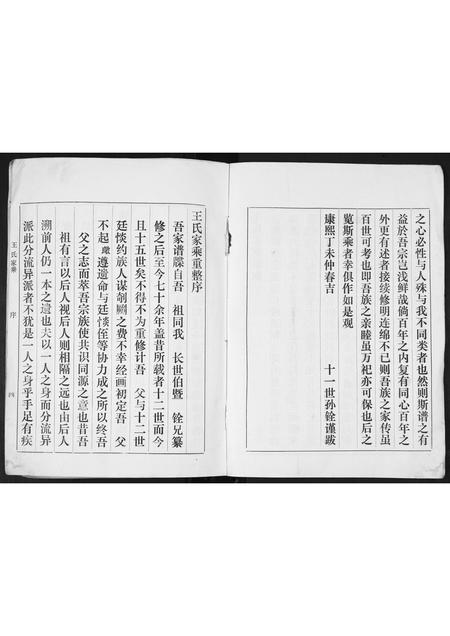 之心必性与人殊与我不同类者也然则斯谱之有
益於吾宗岂浅鲜哉倘百年之内复有同心百年之
外更有述者接续修明连绵不已则吾族之家传虽
百世可考也即吾族之亲睦虽万祀亦可保也后之
览斯乘者幸俱作如是观
康熙丁未仲春吉 十一世孙铨谨跋
王氏家乘重整序
吾家谱牒自吾 祖同我 长世伯暨 铨兄纂
修之后至今七十余年盖昔所载者十二世而今
且十五世矣不得不为重修计吾 父与十二世
廷惔约族人谋剞劂之费不幸经画初定吾 父
不起 遵遗命与廷惔侄等协力成之所以终吾
父之志而萃吾宗族使共识同源之意也昔吾
祖有言以后人视后人则相隔之远也由后人
溯前人仍一本之遗也夫以一人之身而分流异
派此分流异派者不犹是一人之身乎手足有疾
王氏家乘 序 四